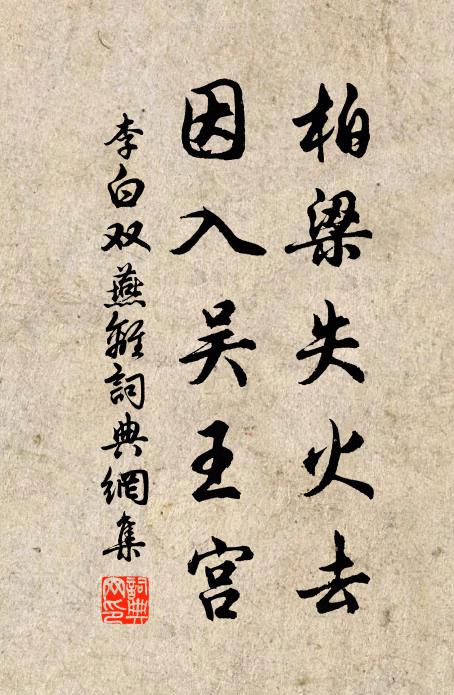 柏梁失火去
因入吴王宫
李白双燕離詞典網集
詞典
网印